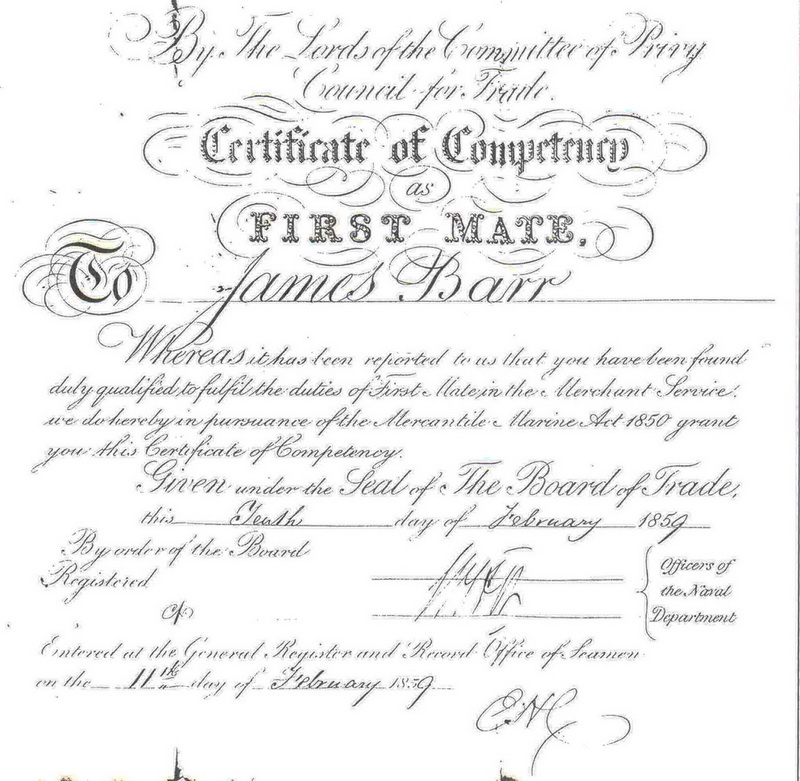 By The Lords of the Committee of Privy
Council for Trade.
Certificate of Competency
as
FIRST MATE.
To James Barr
Whereas it has been reported to us that you have been found
duly qualified to fulfil the duties of First Mate in the Merchant Service.
we do hereby in pursuance of the Mercantile Marine Act 1850 grant
you this Certificate of Competency.
Given under the Seal of The Board of Trade,
this Tenth day of February 1859
By order of the Board
Registered
Officers of
the Naval
Department
Entered at the General Register and Record Office of Seamen
on the 11th day of February 1859